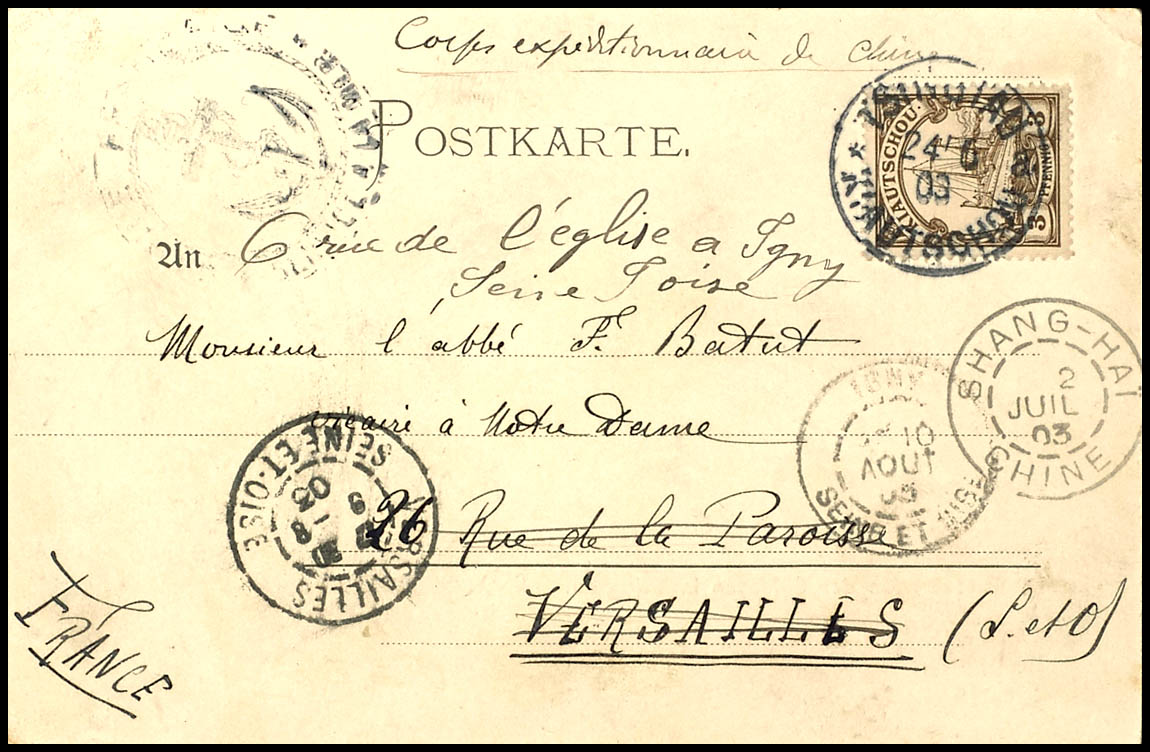 Corps expéditionnaire de Chine
POSTKARTE.
KIAUTSCHOU
3 PFENNIG 3
TSINGTAU
24 6
03
* KIAUTSCHOU *
An
6 rue de l'église a Igny
Seine Toise
Monsieur l'abbé F. Batut
vicaire à Notre Dame
26 Rue de la Paroisse
VERSAILLES (S. et O)
FRANCE
SHANG-HAÏ
2
JUIL
03
CHINE
IGNY
10
AOUT
03
SEINE ET OISE
VERSAILLES
9
8
03
SEINE-ET-OISE